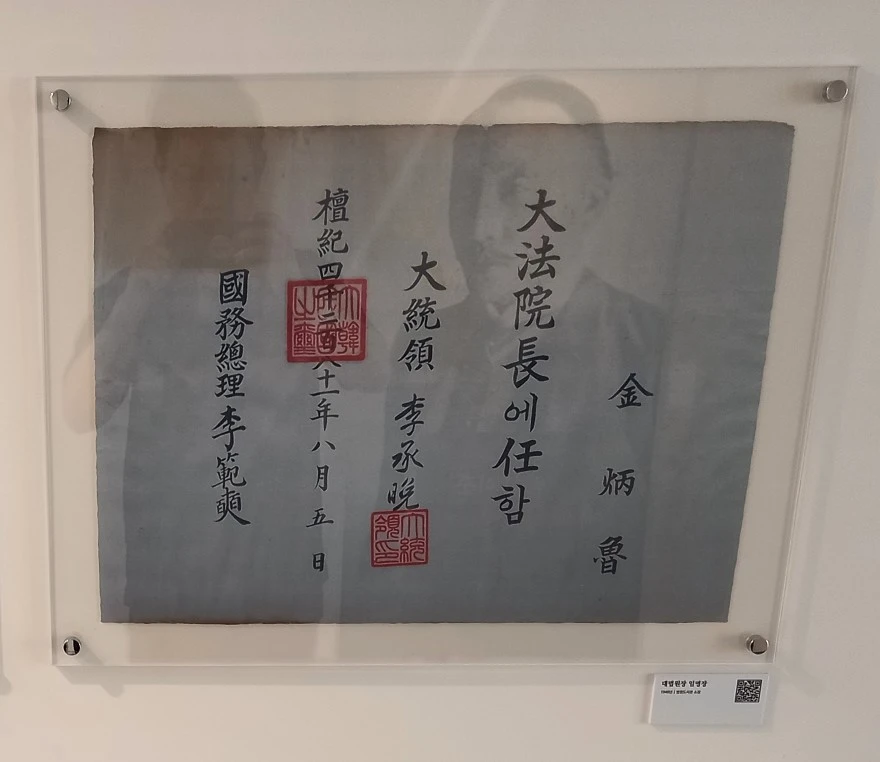 金炳魯
大法院長에任함
大統領 李承晩
大統領印
檀紀四千二百八十一年八月五日
大韓民國之璽
國務總理 李範奭
대법원장 임명장